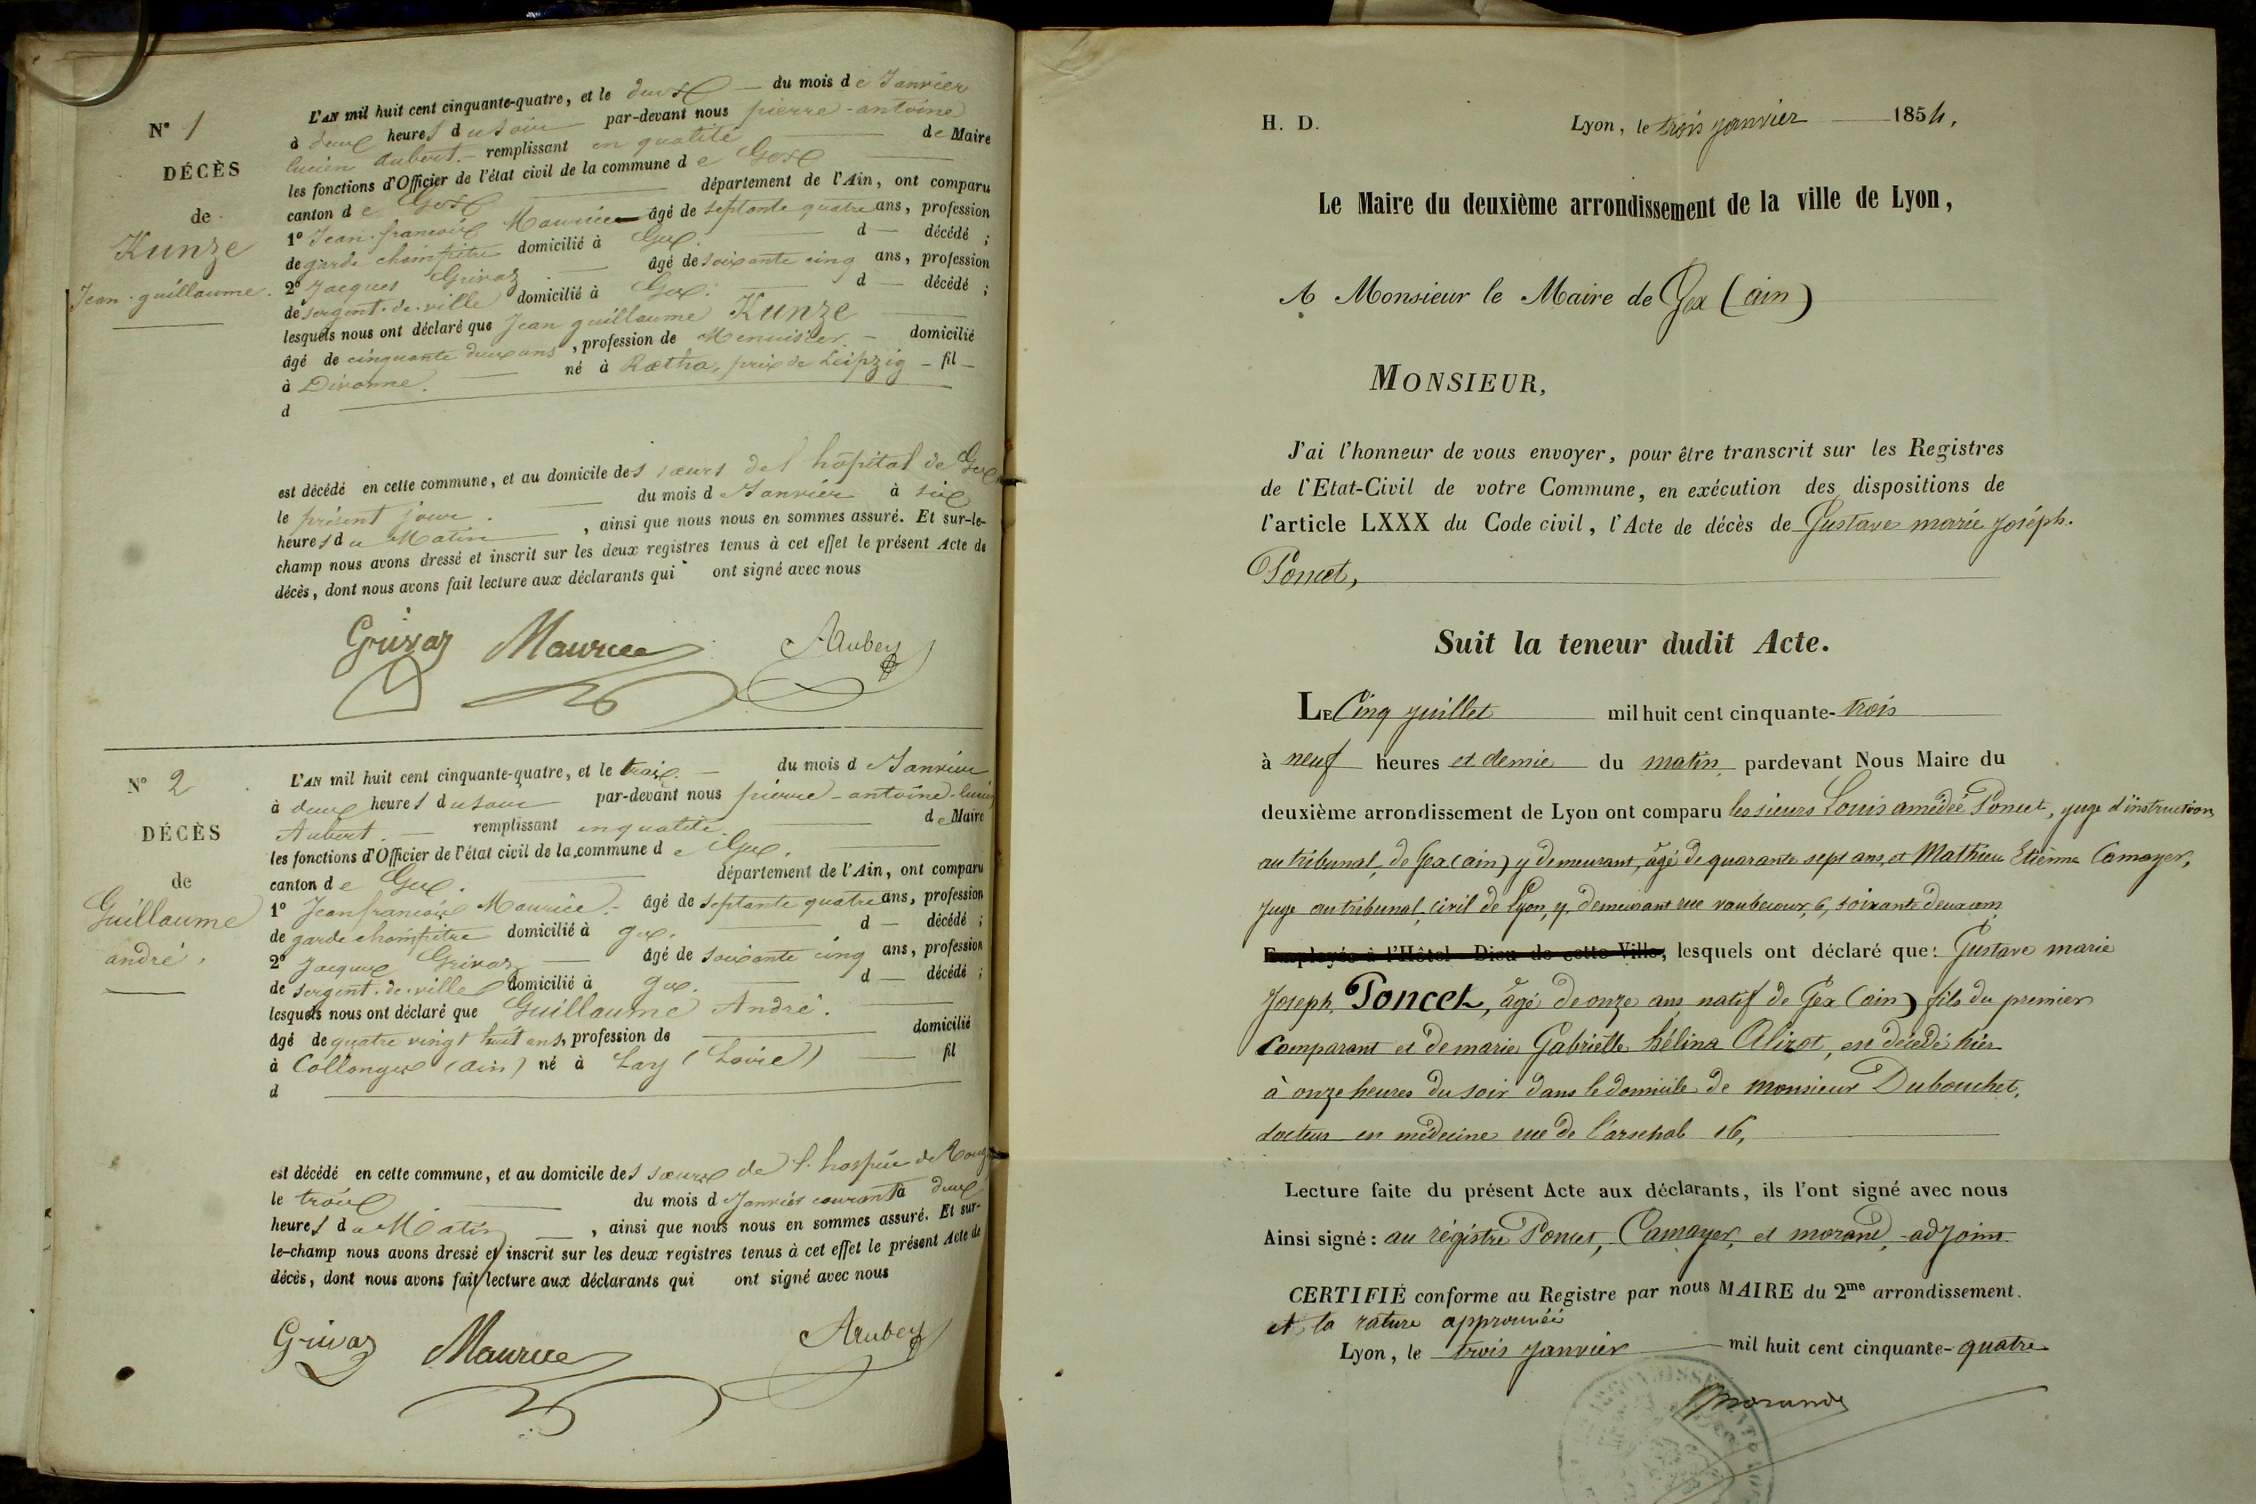 N° 1
DÉCÈS
de
Kunze
Jean-guillaume.
L'AN mil huit cent cinquante-quatre, et le deux — du mois de Janvier
à deux heures du soir par-devant nous pierre-antoine
lucien Aubert. — remplissant en qualité de Maire
les fonctions d'Officier de l'état civil de la commune de Gex
canton de Gex département de l'Ain, ont comparu
1° Jean-francois Maurice âgé de septante quatre ans, profession
de garde champêtre domicilié à Gex. d — décédé ;
2° Jacques Grivaz âgé de soixante cinq ans, profession
de sergent-de-ville domicilié à Gex. d — décédé ;
lesquels nous ont déclaré que Jean guillaume Kunze
âgé de cinquante deux ans, profession de Menuisier. — domicilié
à Divonne. né à Rœtha, près de Leipzig — fil —
d
est décédé en cette commune, et au domicile des sœurs de l'hôpital de Gex
le présent jour. du mois d Janvier à six
heures du Matin, ainsi que nous nous en sommes assuré. Et sur-le-
champ nous avons dressé et inscrit sur les deux registres tenus à cet effet le présent Acte de
décès, dont nous avons fait lecture aux déclarants qui ont signé avec nous
Grivaz Maurice Aubert
N° 2
DÉCÈS
de
Guillaume
andré.
L'AN mil huit cent cinquante-quatre, et le trois. — du mois d Janvier
à deux heures du soir par-devant nous pierre-antoine-lucien
Aubert. — remplissant en qualité de Maire
les fonctions d'Officier de l'état civil de la commune de Gex.
canton de Gex. département de l'Ain, ont comparu
1° Jean francois Maurice. — âgé de septante quatre ans, profession
de garde champêtre domicilié à gex. d — décédé ;
2° Jacques Grivaz — âgé de soixante cinq ans, profession
de sergent-de-ville domicilié à gex. d — décédé ;
lesquels nous ont déclaré que Guillaume André.
âgé de quatre vingt huit ans, profession de domicilié
à Collonges (ain) né à Lay (Loire) fil
d
est décédé en cette commune, et au domicile des sœurs de l'hospice de
le trois du mois d Janvier courant à deux
heures du Matin, ainsi que nous nous en sommes assuré. Et sur-
le-champ nous avons dressé et inscrit sur les deux registres tenus à cet effet le présent Acte de
décès, dont nous avons fait lecture aux déclarants qui ont signé avec nous
Grivaz Maurice Aubert
H. D. Lyon, le trois janvier 1854,
Le Maire du deuxième arrondissement de la ville de Lyon,
A Monsieur le Maire de Gex (ain)
MONSIEUR,
J'ai l'honneur de vous envoyer, pour être transcrit sur les Registres
de l'Etat-Civil de votre Commune, en exécution des dispositions de
l'article LXXX du Code civil, l'Acte de décès de Gustave marie joséph.
Poncet,
Suit la teneur dudit Acte.
LE Cinq juillet mil huit cent cinquante-trois
à neuf heures et demie du matin pardevant Nous Maire du
deuxième arrondissement de Lyon ont comparu les sieurs Louis amédée Poncet, juge d'instruction
au tribunal de Gex (ain) y demeurant, âgé de quarante sept ans, et Mathieu Etienne Camayer,
juge au tribunal civil de Lyon, y demeurant rue vaubecour, 6, soixante deux ans
Employés à l'Hôtel-Dieu de cette Ville, lesquels ont déclaré que: Gustave marie
Joseph Poncet, âgé de onze ans natif de Gex (ain) fils du premier
Comparant et de marie Gabrielle hélina Alizot, est décédé hier
à onze heures du soir dans le domicile de monsieur Dubouchet,
docteur en médecine rue de l'arsenal 16,
Lecture faite du présent Acte aux déclarants, ils l'ont signé avec nous
Ainsi signé : au régistre Poncet, Camayer, et morand, adjoint
CERTIFIÉ conforme au Registre par nous MAIRE du 2me arrondissement.
et la rature approuvée
Lyon, le trois janvier mil huit cent cinquante-quatre
Morand